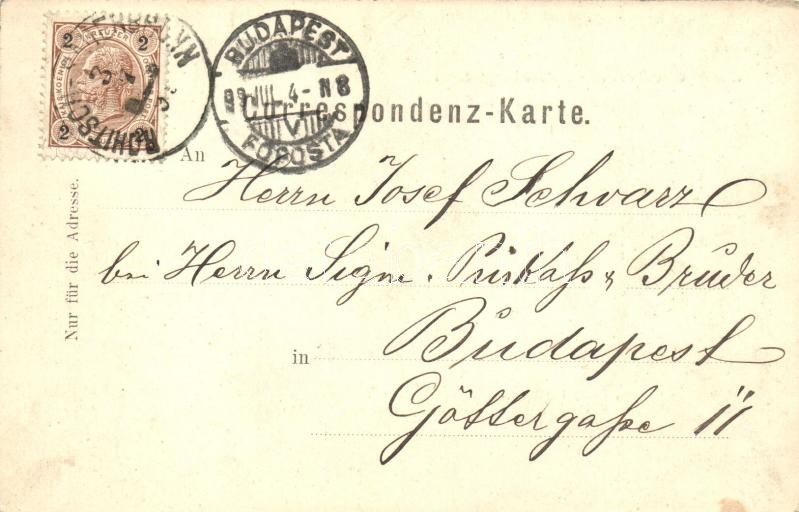 2 KREUZER 2
2 2
ROHITSCH
3
BUDAPEST
99 JUL. 4 - N8
V
FŐPOSTA
Correspondenz-Karte.
An
Herrn Josef Schwarz
bei Herrn Sigm. & Bruder
in Budapest
Göttergaße 11
Nur für die Adresse.